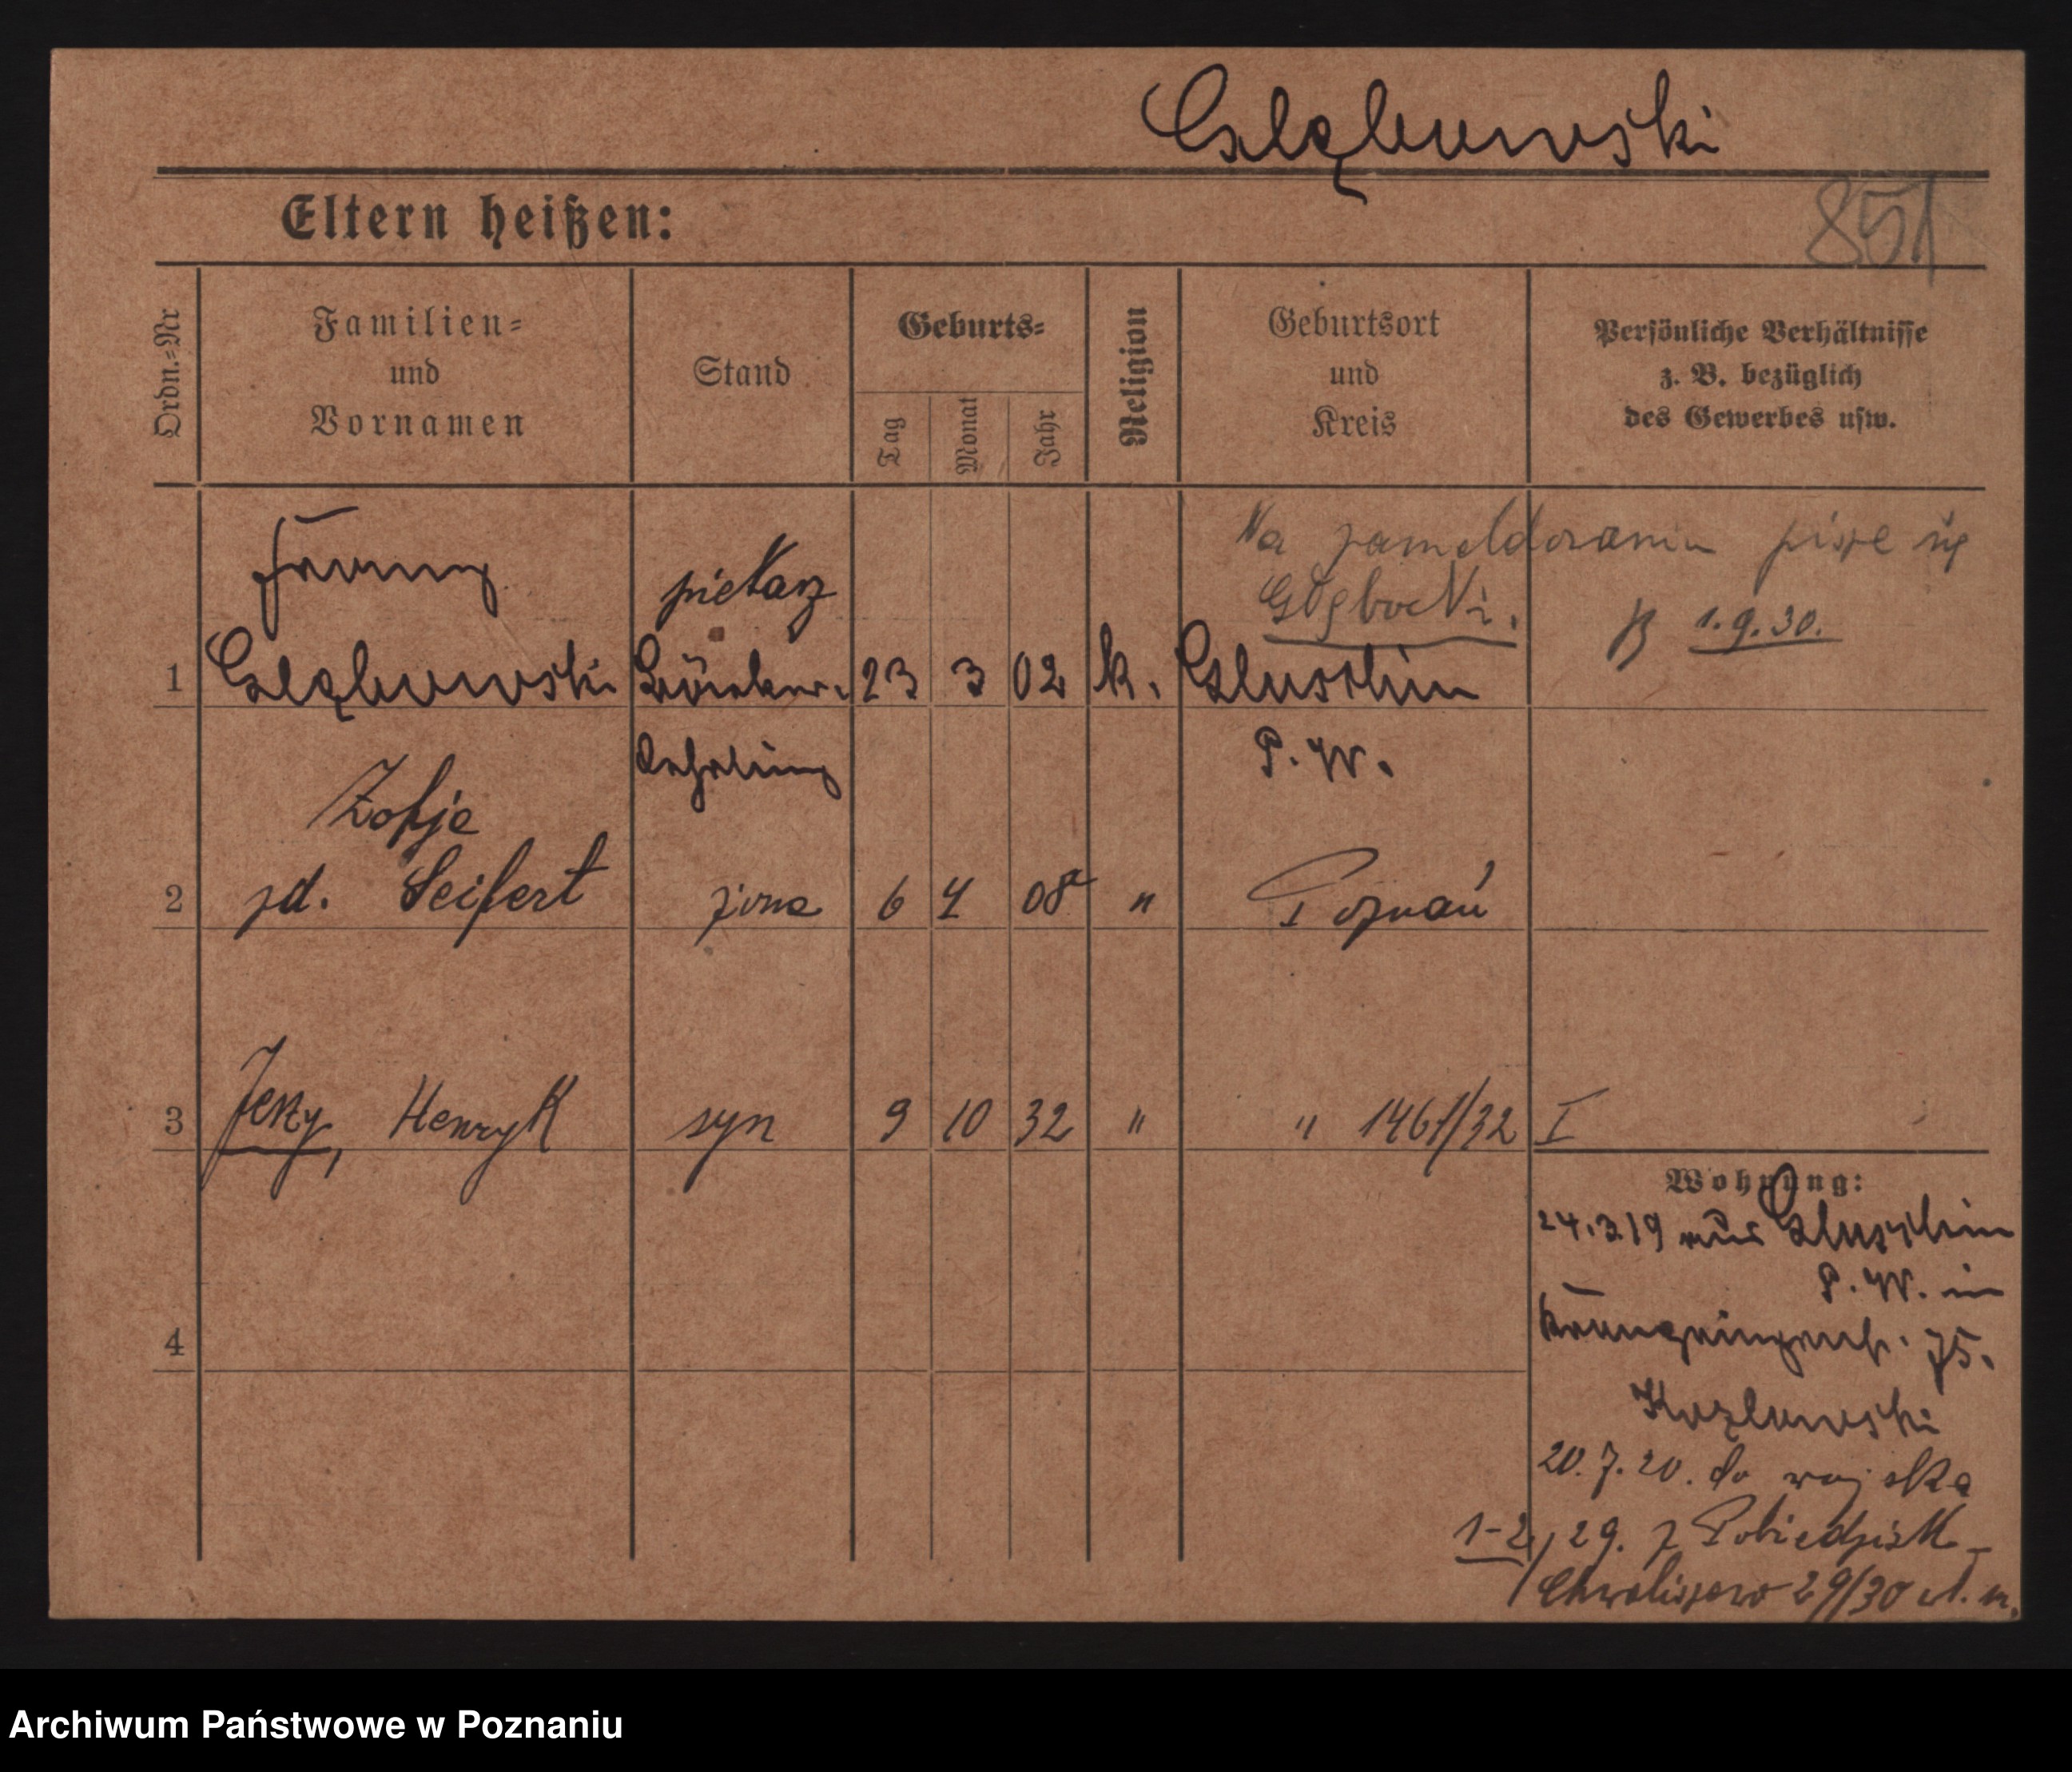 Głębowski
Eltern heißen:
851
Ordn.=Nr
Familien=
und
Vornamen
Stand
Geburts=
Tag
Monat
Jahr
Religion
Geburtsort
und
Kreis
Persönliche Verhältnisse
z. B. bezüglich
des Gewerbes usw.
Na zameldowaniu pisze się
Głęboc
1.9.30.
piekarz
1 Głębowski Bäcker- 23 3 02 k. Gluschin
Lehrling P. W.
Zofja
2 zd. Seifert żona 6 4 08 " Poznań
3 Jerzy, Henryk syn 9 10 32 " " 1461/32 I
Wohnung:
24.3.19 aus Gluschin
P. W. in
Kronprinzenstr. 75.
Kozlowski
4
20.7.20. do wojska
1-2/ 29. z Pobiedzisk-
Chwaliszewo 29/30 u. m.
Archiwum Państwowe w Poznaniu